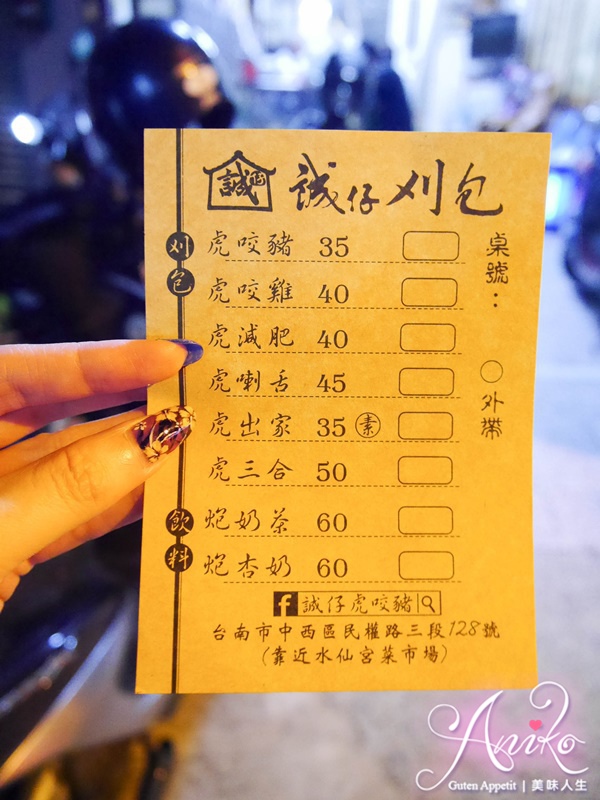 誠 正
誠仔刈包
刈包
虎咬豬 35
虎咬雞 40
虎減肥 40
虎喇舌 45
虎出家 35 素
虎三合 50
飲料
炮奶茶 60
炮杏奶 60
桌號：
○外帶
f 誠仔虎咬豬
台南市中西區民權路三段128號
(靠近水仙宮菜市場)
Aniko
Guten Appetit | 美味人生